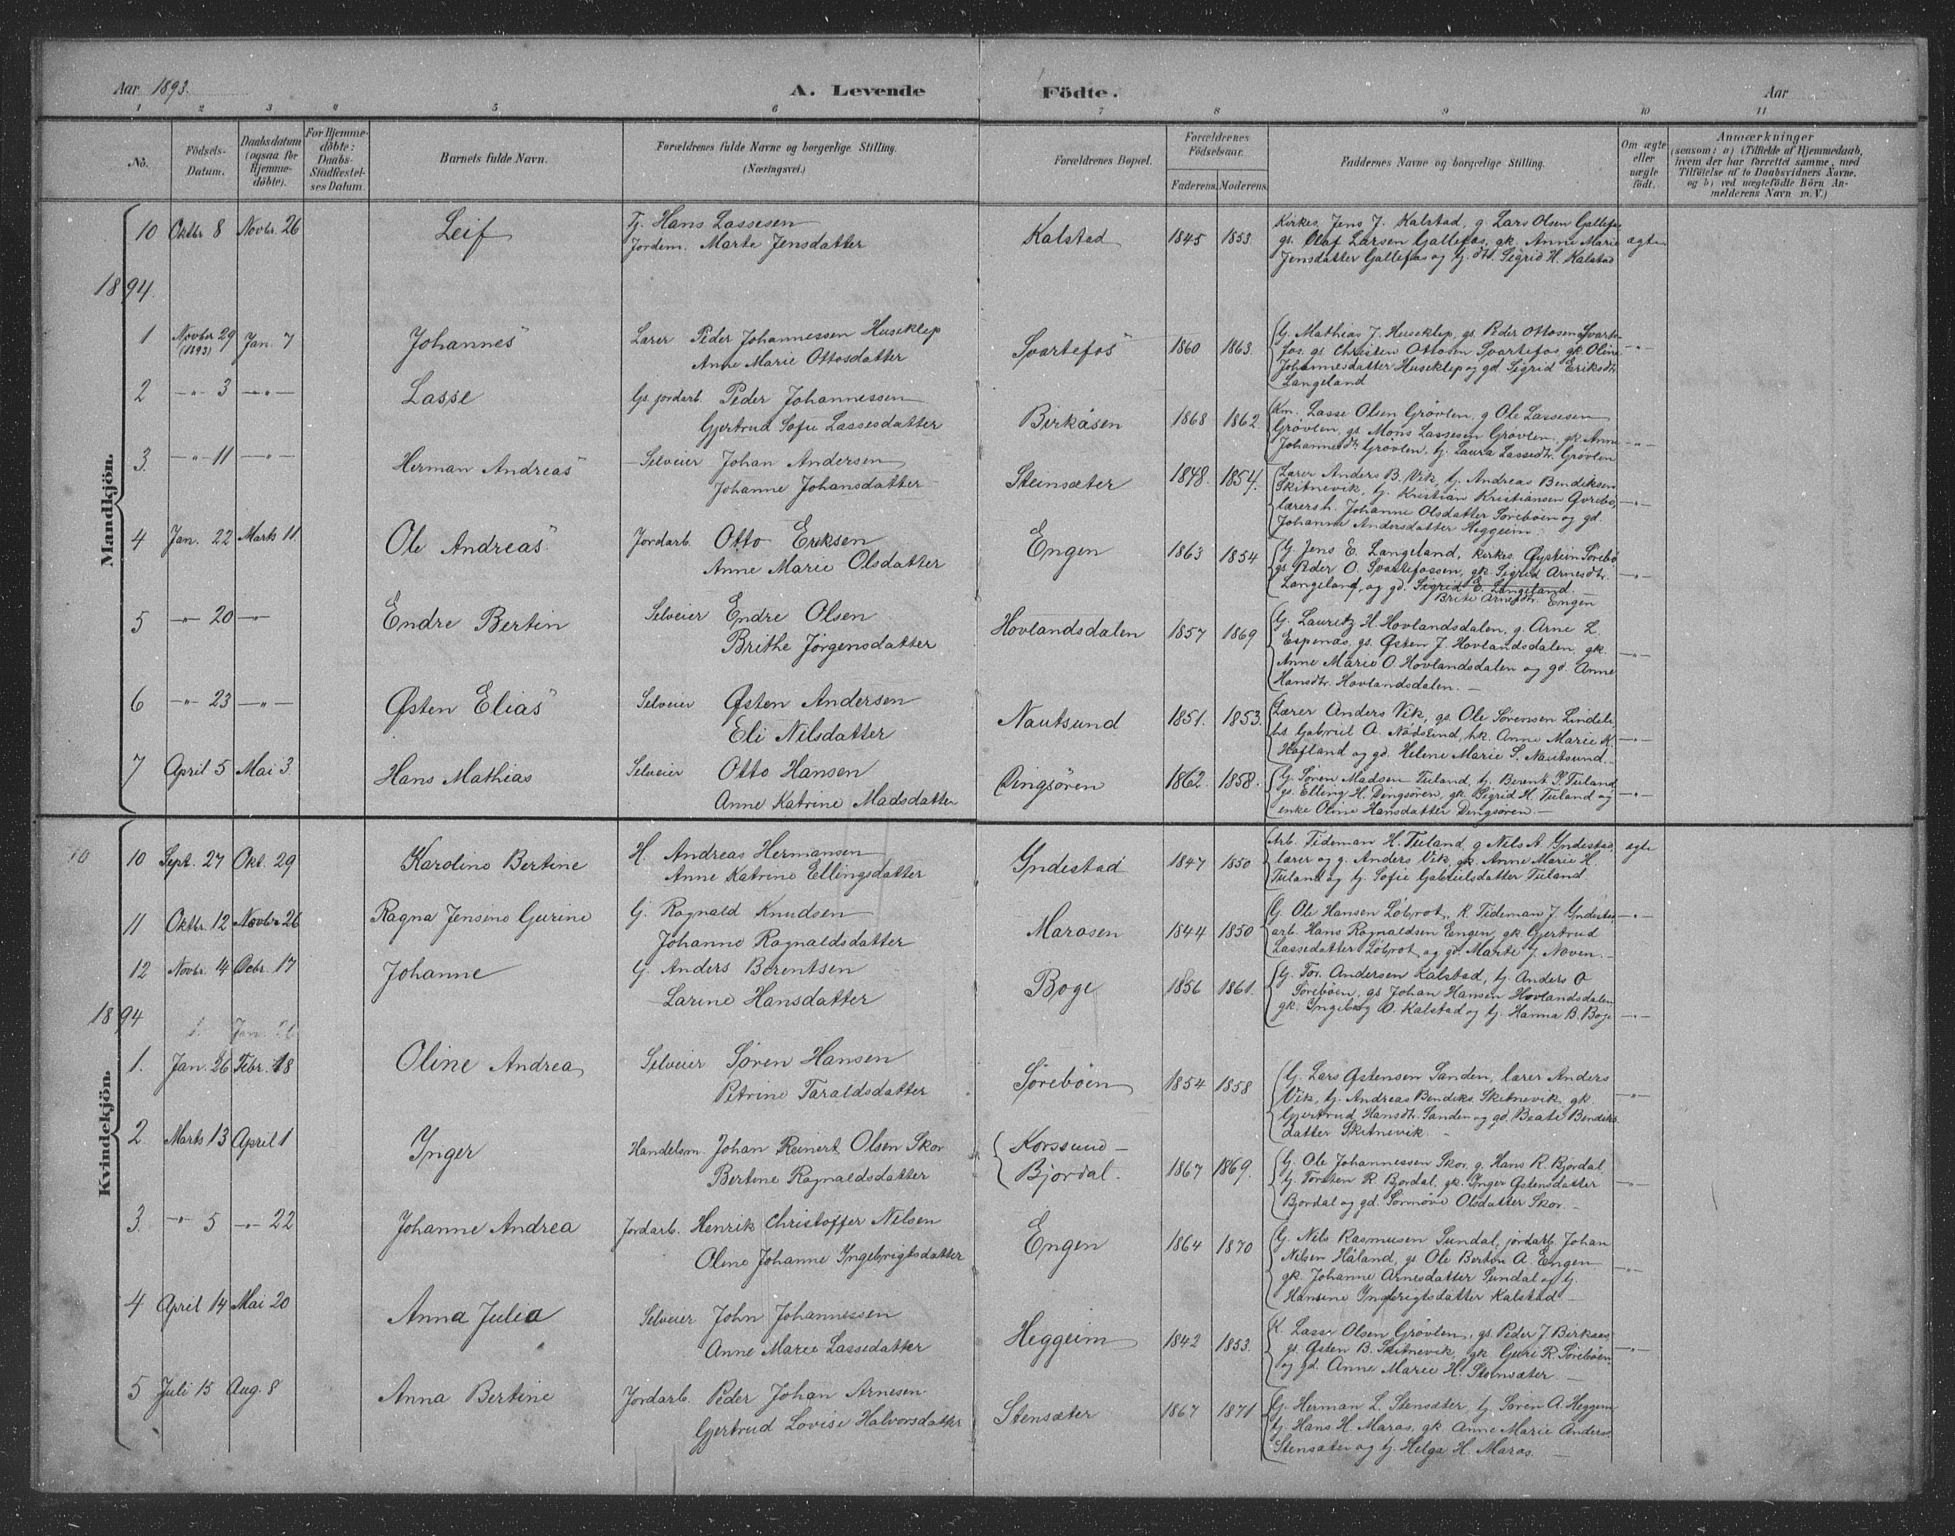 Aar 1893. A. Levende Födte. Aar
1 2 3 4 5 6 7 8 9 10 11
No. Födsels-Datum. Daabsdatum (ogsaa for Hjemmedöbte). For Hjemmedöbte: Daabs-Stadfestelses Datum. Barnets fulde Navn. Forældrenes fulde Navne og borgerlige Stilling. (Næringsvei.) Forældrenes Bopæl. Forældrenes Födselsaar. Faderens. Moderens. Faddernes Navne og borgerlige Stilling. Om ægte eller uægte födt. Anmærkninger (saasom: a) (Tilfælde af Hjemmedaab, hvem der har forrettet samme, med Tilföielse af to Daabsvidners Navne, og b) ved uægtefödte Börn Anmelderens Navn m. V.)
Mandkjön.
10 Oktbr 8 Novbr. 26 Leif Tj. Hans Lassesen Kalstad 1845 1853. Kirkes. Jens J. Kalstad, g. Lars Olsen Gallefos ægte
Jordem. Marte Jensdatter gs. Olaf Larsen Gallefos, gk. Anne Marie
Jensdatter Gallefos og tj. dtr. Sigrid H. Kalstad
1894.
1 Novbr 29 (1893) Jan. 7 Johannes Lærer Peder Johannessen Huseklep Svartefos 1860 1863. G. Mathias J. Huseklep, gs. Peder Ottosen Svarte- -"-
Anne Marie Ottosdatter fos, gs. Christen Ottosen Svartefos, gk. Oline
Johannesdatter Huseklep og gd. Sigrid Eriksdtr.
Langeland
2 -"- 3 -"- Lasse Gs. jordarb. Peder Johannessen Birkåsen 1868 1862. Km. Lasse Olsen Grövlen, g Ole Lassesen
Gjertrud Sofie Lassesdatter Grövlen, gs. Mons Lassesen Grövlen, gk. Anne -"-
Johannesdtr. Grövlen, tj. Laura Lassedtr. Grövlen
3. -"- 11 -"- Herman Andreas Selveier Johan Andersen Steinsæter 1848. 1854. Lærer Anders B. Vik, tj. Andreas Bendiksen
Johanne Johansdatter Skitnevik, tj. Kristian Kristiansen -"-
lærersh. Johanne Olsdatter Söreböen og gd.
Johanne Andersdatter Heggeim.
4 Jan. 22 Marts 11 Ole Andreas Jordarb. Otto Eriksen Engen 1863 1854 G. Jens E. Langeland, kirkes. Øystein Sörebö
Anne Marie Olsdatter gs. Peder O. Svartefossen, gk. Sigrid Arnesdtr. -"-
Langeland, og gd. Sigrid E. Langeland.
Brite Arnesdtr. Engen
5 -"- 20 -"- Endre Bertin Selveier Endre Olsen Hovlandsdalen 1857 1869 G. Lauritz H. Hovlandsdalen, g. Arne L.
Brithe Jörgensdatter Espenæs, gs. Østen J. Hovlandsdalen, gk. -"-
Anne Marie O. Hovlandsdalen og gd. Anne
Hansdtr. Hovlandsdalen.
6 -"- 23 -"- Østen Elias Selveier Østen Andersen Nautsund 1851. 1853. Lærer Anders Vik, gs. Ole Sörensen Lindeli
Eli Nilsdatter hs Gabriel A. Nödsund, hk. Anne Marie K. -"-
Hofland og gd. Helene Marie S. Nautsund.
7 April 5 Mai 3. Hans Mathias Selveier Otto Hansen Dingsören 1862. 1858. G. Sören Madsen Tuland, tj. Berent S. Tuland
Anne Katrine Madsdatter gs. Elling H. Dengsören, gk. Sigrid H. Tuland og -"-
enke Oline Hansdatter Dengsören.
Kvindekjön.
10 10 Sept. 27 Okt. 29 Karoline Bertine H. Andreas Hermansen Yndestad 1847 1850 Arb. Tideman H. Tuland, g Nils A. Yndestad, ægte
Anne Katrine Ellingsdatter lærer og g. Anders Vik, gk. Anne Marie H.
Tuland og tj. Sofie Gabrielsdatter Tuland
11 Oktbr. 12 Novbr. 26 Ragna Jensine Gurine G. Ragnald Knudsen Marasen 1844 1850 G. Ole Hansen Löbrot, K. Tideman J. Yndestad -"-
Johanne Ragnaldsdatter arb. Hans Ragnaldsen Engen, gk. Gjertrud
Lassedatter Löbrot og gd. Marte J. Noven.
12 Novbr. 4 Decbr. 17 Johanne G. Anders Berentsen Boge 1856 1861. G. Tor. Andersen Kalstad, tj. Anders O
Larine Hansdatter Söreböen, gs Johan Hansen Hovlandsdalen
gk. Ingeborg O. Kalstad og tj. Hanna B. Boge -"-
1894
1. Jan. 26
1. Jan. 26 Febr. 18 Oline Andrea Selveier Sören Hansen Söreböen 1854 1858 G. Lars Østensen Sanden, lærer Anders
Petrine Taraldsdatter Vik, tj. Andreas Bendiks. Skitnevik, gk. -"-
Gjertrud Hansdtr. Sanden og gd. Beate Bendiks
datter Skitnevik.
2. Marts 13 April 1 Inger Handelsm. Johan Reinert Olsen Skor Korssund - 1867 1869. G. Ole Johannessen Skor, g. Hans R. Bjordal,
Bertine Ragnaldsdatter Bjordal. tj. Torsten R. Bjordal, gk. Inger Østensdatter -"-
Bjordal og gd. Sörnöve Olsdatter Skor.
3. -"- 5 -"- 22 Johanne Andrea Jordarb. Henrik Christoffer Nilsen Engen 1864 1870 G. Nils Rasmusen Sundal, jordarb. Johan
Oline Johanne Ingebrigtsdatter Nilsen Håland, gs Ole Bertin A. Engen
gk. Johanne Arnesdatter Sundal og tj. -"-
Hansine Ingebrigtsdatter Kalstad
4 April 14 Mai 20 Anna Julia Selveier John Johannessen Heggeim 1842 1853. K. Lasse Olsen Grövlen, gs. Peder J. Birkaas,
Anne Marie Lassedatter gs. Østen B. Skitnevik, gk Guri R. Söreböen -"-
og gd. Anne Marie H. Stensæter
5 Juli 15 Aug. 8 Anna Bertine Jordarb. Peder Johan Arnesen Stensæter 1867 1871 G. Herman L. Stensæter, tj. Sören A. Heggeim
Gjertrud Lovise Halvorsdatter tj. Hans H. Maras, gk. Anne Marie Anders.
Stensæter og tj. Helga H. Maras.